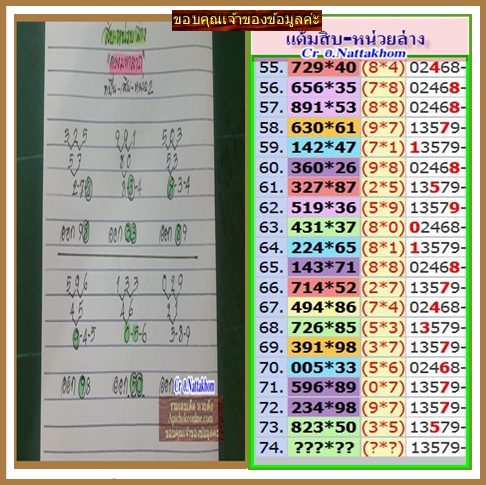 ขอบคุณเจ้าของข้อมูลค่ะ
สิบ-หน่วยล่าง
325 991 563
57 80 53
ออก 63
596 133 029
45 46 21
3-8-9
Cr @.Nattakhom
รวมเลขเด็ด หวยดัง
Apichokeonline.com
ขอบคุณเจ้าของข้อมูลค่ะ
แต้มสิบ-หน่วยล่าง
Cr @.Nattakhom
55. 729*40 (8*4) 02468-
56. 656*35 (7*8) 02468-
57. 891*53 (8*8) 02468-
58. 630*61 (9*7) 13579-
59. 142*47 (7*1) 13579-
60. 360*26 (9*8) 02468-
61. 327*87 (2*5) 13579-
62. 519*36 (5*9) 13579-
63. 431*37 (8*0) 02468-
64. 224*65 (8*1) 13579-
65. 143*71 (8*8) 02468-
66. 714*52 (2*7) 13579-
67. 494*86 (7*4) 02468-
68. 726*85 (5*3) 13579-
69. 391*98 (3*7) 13579-
70. 005*33 (5*6) 02468-
71. 596*89 (0*7) 13579-
72. 234*98 (9*7) 13579-
73. 823*50 (3*5) 13579-
74. ???*?? (?*?) 13579-